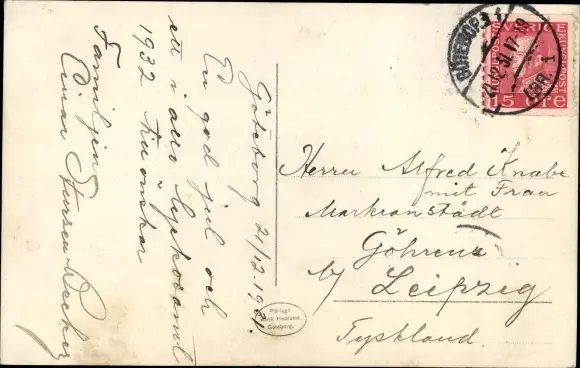 Göteborg 21/12.1931.
En god jul och
ett i allo lyckosamt
1932 tillönskar
Familjen
Einar
Herrn Alfred Knabe
mit Frau
Markranstädt
Göhrenz
b/ Leipzig
Tyskland.
Förlag:
Göteborg.
GÖTEBORG 1
21.12.31.17-19
LBR. 1
SVERIGE
15 ÖRE